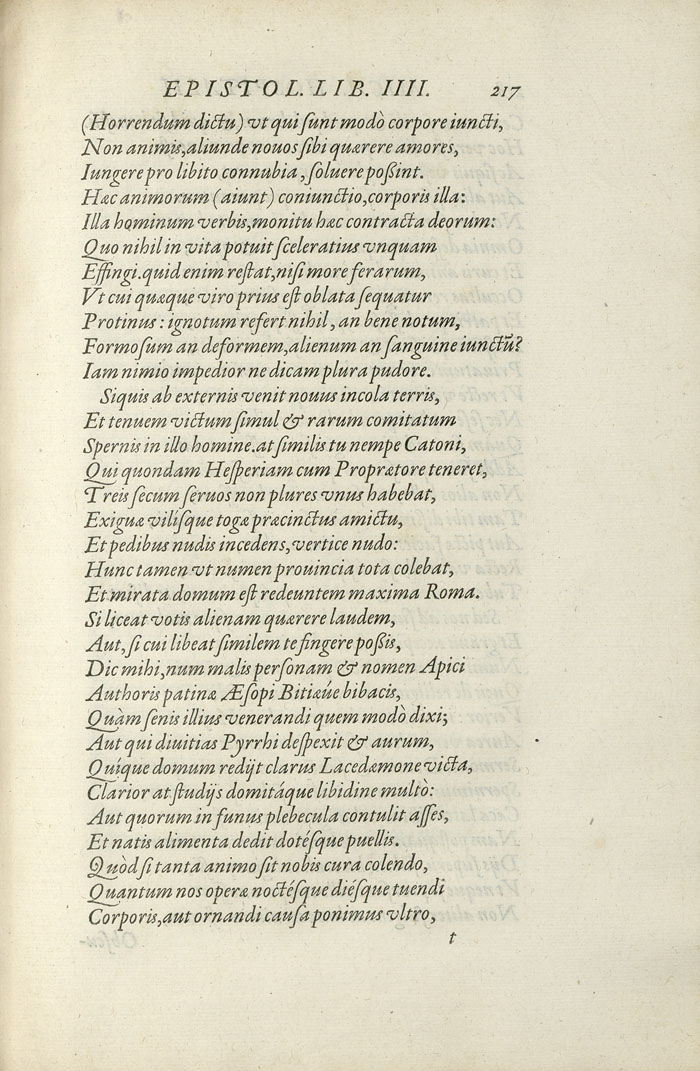 EPISTOL. LIB. IIII. 217
(Horrendum dictu) vt qui ſunt modò corpore iuncti,
Non animis,aliunde nouos ſibi quærere amores,
Iungere pro libito connubia, ſoluere poßint.
Hæc animorum (aiunt) coniunctio,corporis illa:
Illa hominum verbis,monitu hæc contracta deorum:
Quo nihil in vita potuit ſceleratius vnquam
Effingi.quid enim reſtat,niſi more ferarum,
Vt cui quæque viro prius eſt oblata ſequatur
Protinus: ignotum refert nihil, an bene notum,
Formoſum an deformem,alienum an ſanguine iunctũ?
Iam nimio impedior ne dicam plura pudore.
Siquis ab externis venit nouus incola terris,
Et tenuem victum ſimul & rarum comitatum
Spernis in illo homine.at ſimilis tu nempe Catoni,
Qui quondam Heſperiam cum Proprætore teneret,
Treis ſecum ſeruos non plures vnus habebat,
Exiguæ viliſque togæ præcinctus amictu,
Et pedibus nudis incedens,vertice nudo:
Hunc tamen vt numen prouincia tota colebat,
Et mirata domum eſt redeuntem maxima Roma.
Si liceat votis alienam quærere laudem,
Aut,ſi cui libeat ſimilem te fingere poßis,
Dic mihi,num malis perſonam & nomen Apici
Authoris patinæ Æſopi Bitiæúe bibacis,
Quàm ſenis illius venerandi quem modò dixi;
Aut qui diuitias Pyrrhi deſpexit & aurum,
Quíque domum redijt clarus Lacedæmone victa,
Clarior at ſtudijs domitáque libidine multò:
Aut quorum in funus plebecula contulit aſſes,
Et natis alimenta dedit dotéſque puellis.
Quòd ſi tanta animo ſit nobis cura colendo,
Quantum nos operæ noctéſque diéſque tuendi
Corporis,aut ornandi cauſa ponimus vltro,
t